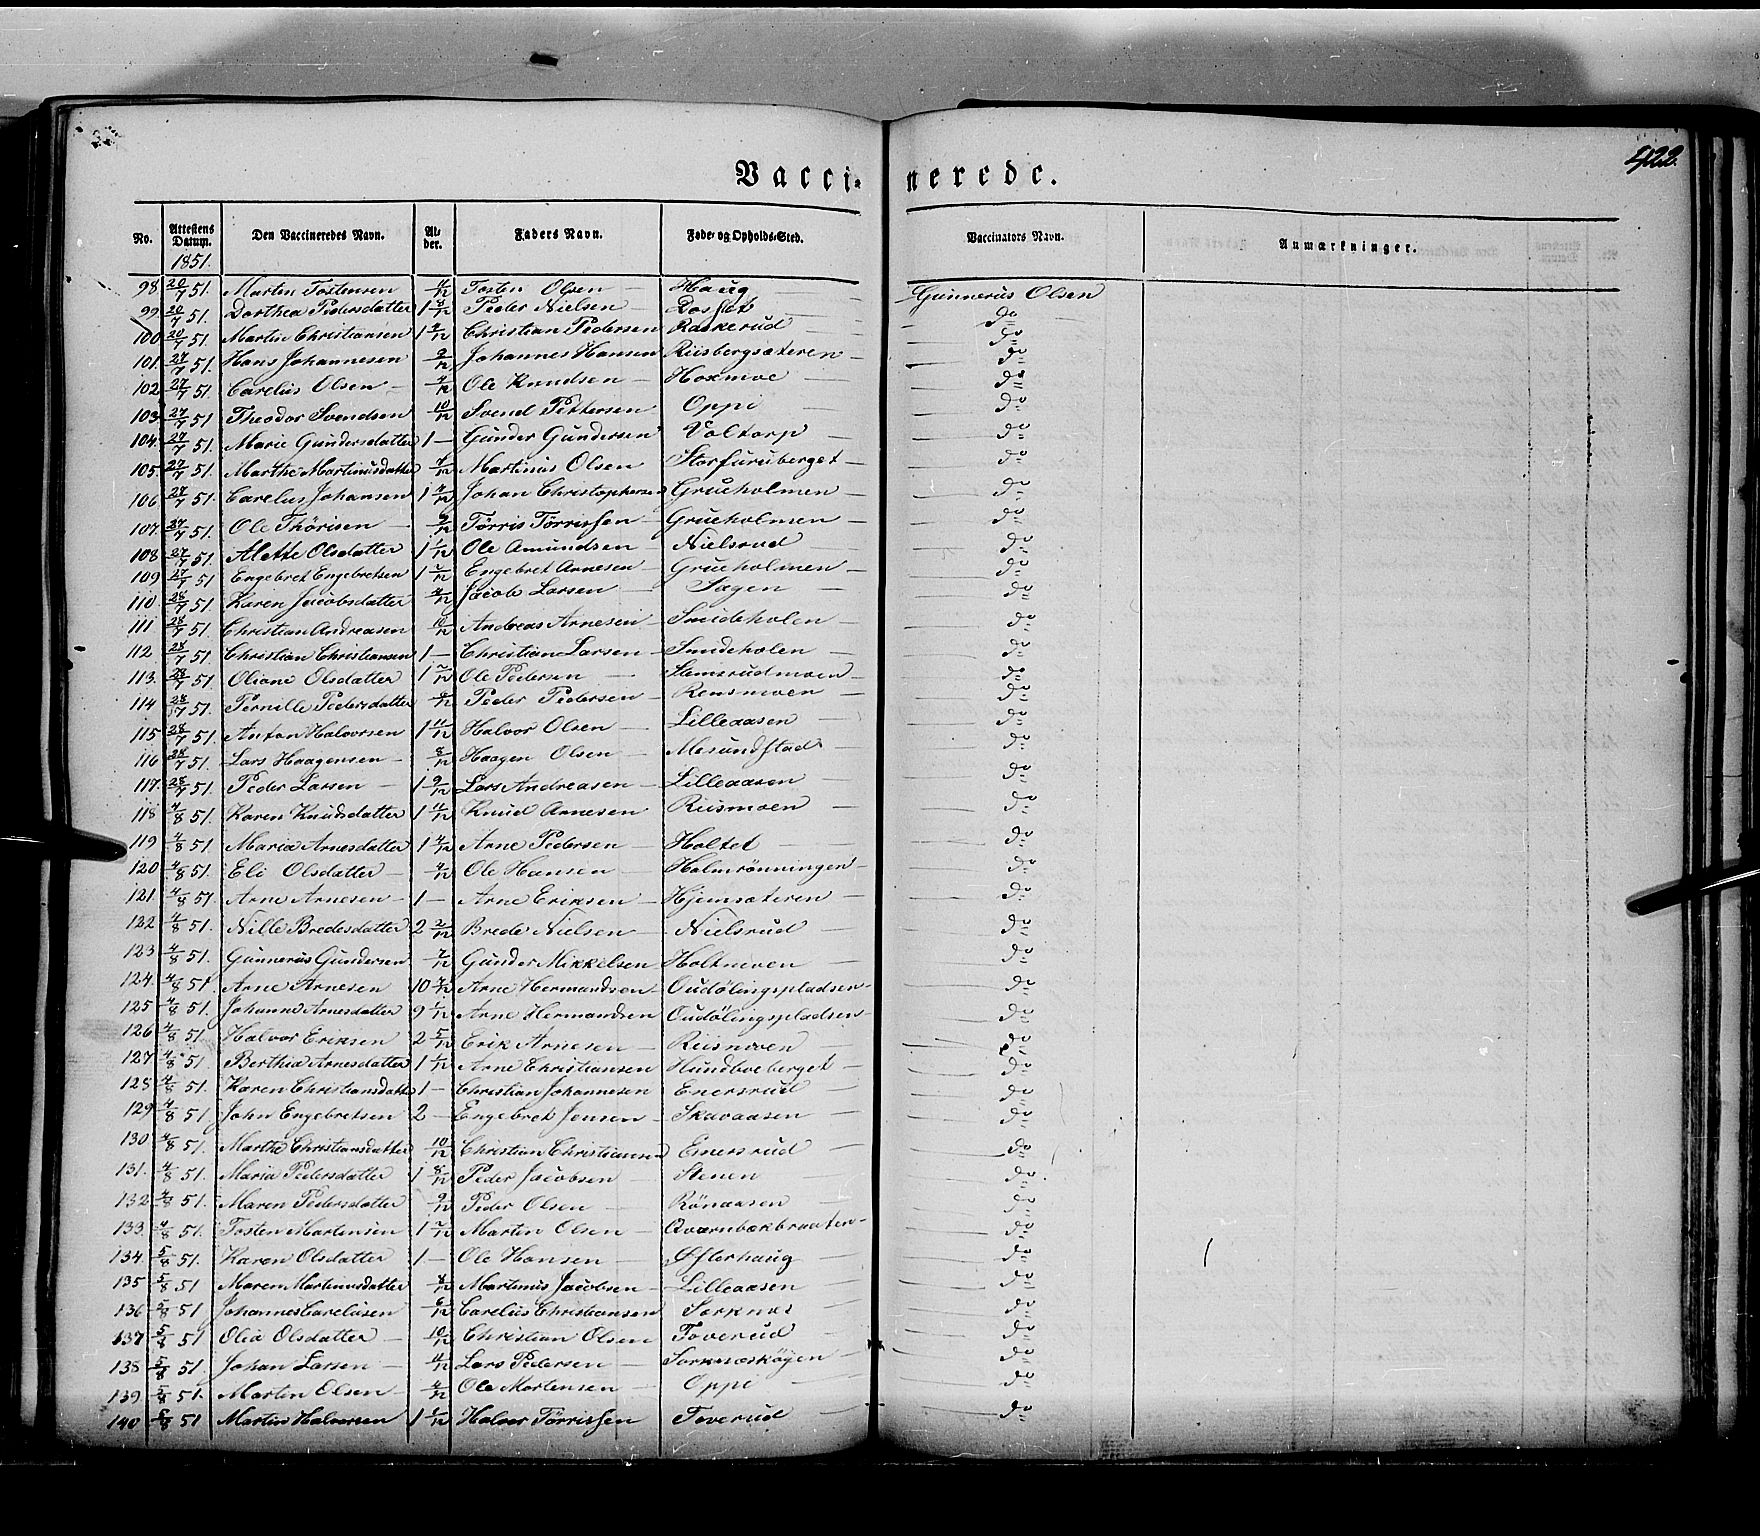 422.
Vacci- nerede.
No. Attestens Datum. Den Vaccineredes Navn. Al- der. Faders Navn. Føde- og Opholds-Sted. Vaccinators Navn. Anmærkninger.
1851.
98 20/7 51. Martin Tostensen /12 Tosten Olsen — Haug Gunnerus Olsen
99 20/7 51. Dorthea Pedersdatter 1 8/12 Peder Nielsen — — do
100 20/7 51. Martin Christiansen 1 /12 Christian Pedersen Raskerud — do
101. 27/7 51. Hans Johannesen 9/12 Johannes Hansen Riisbergsæteren — do
102. 27/7 51. Carelius Olsen — 4/12 Ole Knudsen — Hoxmoe — do
103. 27/7 51 Theodor Svendsen 10/12 Svend Pettersen Oppi — do
104. 27/7 51. Marie Gundersdatter 1 — Gunder Gundersen Voltorp — do
105. 27/7 51. Marthe Martinusdatter /12 Martinus Olsen Storfuruberget — do
106 27/7 51. Carelus Johansen 1 4/12 Johan Christophersen Grueholmen — do
107. 27/7 51. Ole Thörisen — 9/12 Törris Törrissen — Grueholmen — do
108 27/7 51. Alette Olsdatter 1 1/12 Ole Amundsen — Nielsrud — do
109 27/7 51 Engebret Engebretsen 1 /12 Engebret Arnesen — Grueholmen — do
110. 28/7 51. Karen Jacobsdatter /12 Jacob Larsen — Sagen — do
111 28/7 51. Christian Andreasen 10/12 Andreas Arnesen — — do
112 28/7 51. Christian Christiansen 1 — Christian Larsen — — do
113. 28/7 51. Oliane Olsdatter 1 /12 Ole Pedersen — Stemsrudmoen — do
114 28/7 51. Pernille Pedersdatter /12 Peder Pedersen — Rensmoen — do
115 28/7 51. Anton Halvorsen 1 11/12 Halvor Olsen — Lilleaasen — do
116 28/7 51. Lars Haagensen — 8/12 Haagen Olsen — Mosundstad — do
117. 28/7 51. Peder Larsen — 1 9/12 Lars Andreasen Lilleaasen — do
118 4/8 51. Karen Knudsdatter 1 11/12 Knud Arnesen — Riismoen — do
119 4/8 51. Maria Arnesdatter 1 4/12 Arne Pedersen — Holtet — do
120 4/8 51. Eli Olsdatter — 4/12 Ole Hansen — Holmrönningen — do
121. 4/8 51. Arne Arnesen — 1 — Arne Eriksen — Hjemsæteren — do
122 4/8 51. Nille Bredesdatter 2 2/12 Brede Nielsen — Nielsrud — do
123 4/8 51. Gunnerus Gundersen 7/12 Gunder Mikkelsen Holtmoen — do
124. 4/8 51. Arne Arnesen 10 /12 Arne Hermandsen — Oudölingspladsen — do
125 4/8 51. Johanne Arnesdatter 9 1/12 Arne Hermandsen Oudölingspladsen — do
126 4/8 51. Halvor Eriksen 2 5/12 Erik Arnesen — Riismoen — do
127 4/8 51 Berthia Arnesdatter 1 1/12 Arne Christiansen Hundboeberget — do
128 4/8 51. Karen Christiansdatter 1 — Christian Johannesen Enersrud — do
129 4/8 51 John Engebretsen 2 — Engebret Jensen — Skavaasen — do
130 4/8 51. Marthe Christiansdatter 10/12 Christian Christiansen Enersrud — do
131. 4/8 51. Maria Pedersdatter 1 8/12 Peder Jacobsen — Stenen — do
132 4/8 51. Maren Pedersdatter 9/12 Peder Olsen — Rönaasen — do
133. 4/8 51. Tosten Martensen 1 /12 Martin Olsen — Qværnbækbraaten — do
134. 5/8 51. Karen Olsdatter 1 — Ole Hansen — Østerhaug — do
135 5/8 51 Maren Martinusdatter /12 Martinus Jacobsen — Lilleaasen do
136 5/8 51 Johannes Careliusen 6/12 Carelius Christiansen Sorknæs — do
137 5/8 51 Olia Olsdatter — 10/12 Christian Olsen — Toverud — do
138 5/8 51 Johan Larsen — 11/12 Lars Pedersen — Sorknæskögen — do
139 5/8 51. Martin Olsen — 4/12 Ole Mortensen — Oppi — do
140 5/8 51 Martin Halvorsen 1 1/12 Halvor Törrissen Toverud — do